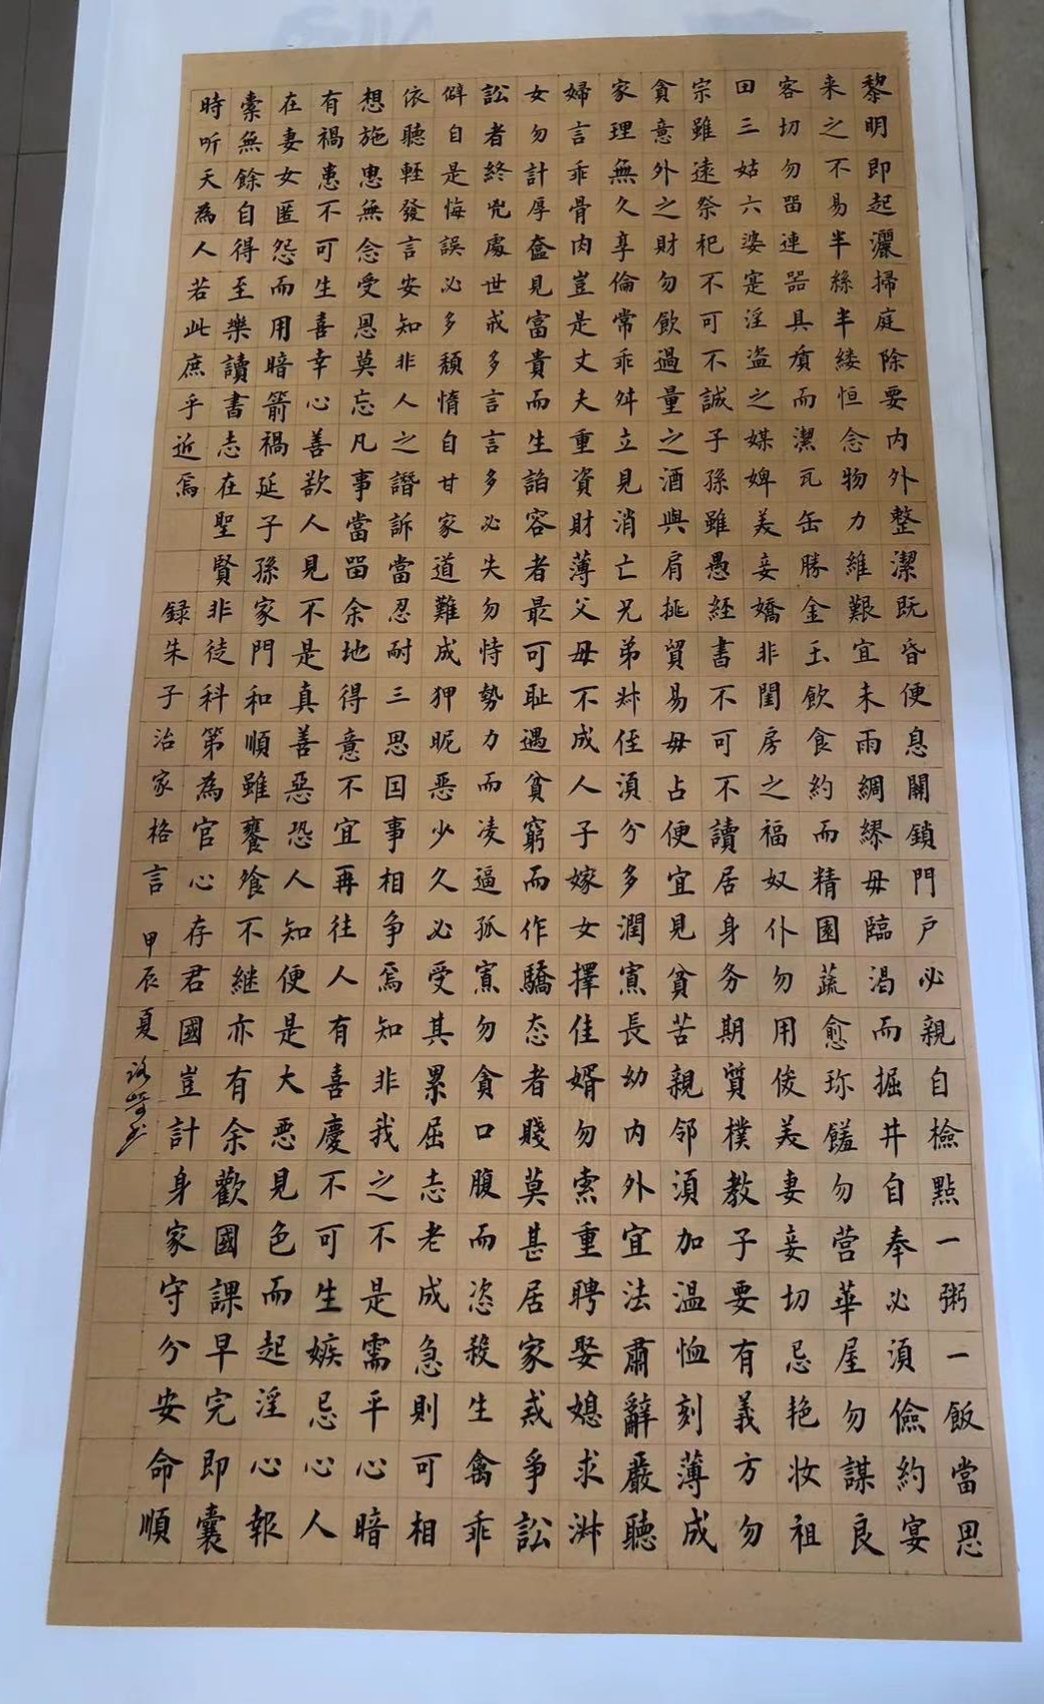 黎明即起灑掃庭除要内外整潔既昏便息關鎖門户必親自檢點一粥一飯當思
来之不易半絲半縷恒念物力維艱宜未雨綢繆毋臨渴而掘井自奉必須儉約宴
客切勿畱連器具質而潔瓦缶勝金玉飲食約而精園蔬愈珍饈勿营華屋勿謀良
田三姑六婆寔淫盗之媒婢美妾嬌非閨房之福奴仆勿用俊美妻妾切忌艳妆祖
宗雖遠祭祀不可不誠子孫雖愚經書不可不讀居身务期質樸教子要有義方勿
貪意外之財勿飲過量之酒與肩挑貿易毋占便宜見貧苦親邻須加温恤刻薄成
家理無久享倫常乖舛立見消亡兄弟叔侄須分多潤寡長幼内外宜法肅辭嚴聽
婦言乖骨肉豈是丈夫重資財薄父母不成人子嫁女擇佳婿勿索重聘娶媳求淑
女勿計厚奩見富貴而生諂容者最可耻遇貧窮而作驕态者賤莫甚居家戒爭訟
訟者終兇處世戒多言言多必失勿恃勢力而凌逼孤寡勿貪口腹而恣殺生禽乖
僻自是悔誤必多頹惰自甘家道難成狎昵恶少久必受其累屈志老成急則可相
依聽輕發言安知非人之譖訴當忍耐三思因事相争焉知非我之不是需平心暗
想施惠無念受恩莫忘凡事當畱余地得意不宜再往人有喜慶不可生嫉忌心人
有禍患不可生喜幸心善欲人見不是真善惡恐人知便是大恶見色而起淫心報
在妻女匿怨而用暗箭禍延子孫家門和順雖饔飧不継亦有余歡國課早完即囊
橐無餘自得至樂讀書志在聖賢非徒科第為官心存君國豈計身家守分安命順
時听天為人若此庶乎近焉 録朱子治家格言 甲辰夏